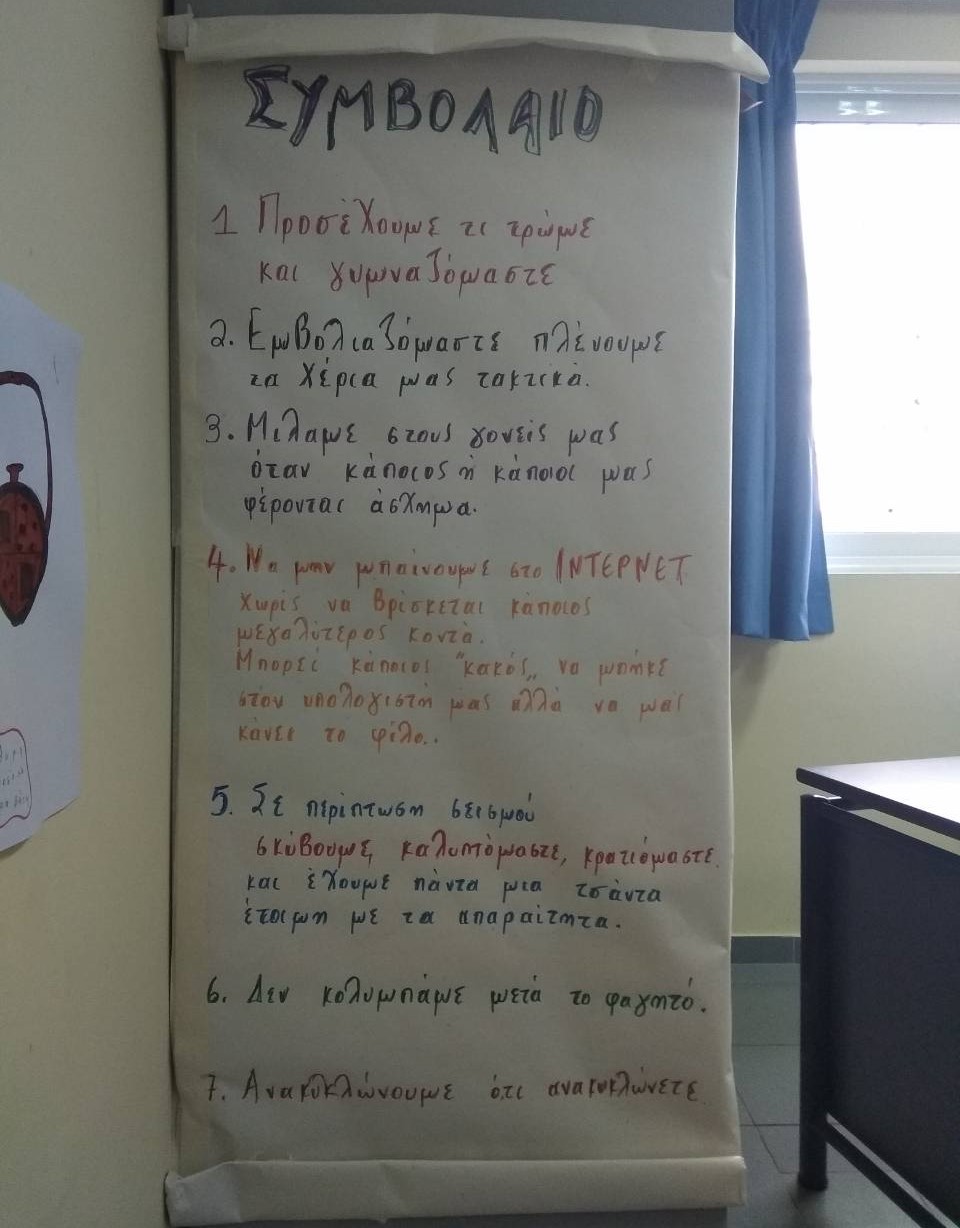 ΣΥΜΒΟΛΑΙΟ
1 Προσέχουμε τι τρώμε
και γυμναζόμαστε
2. Εμβολιαζόμαστε πλένουμε
τα χέρια μας τακτικά.
3. Μιλαμε στους γονείς μας
όταν κάποιος ή κάποιοι μας
φέρονται άσχημα.
4. Να μην μπαίνουμε στο ΙΝΤΕΡΝΕΤ
χωρίς να βρίσκεται κάποιος
μεγαλύτερος κοντά.
Μπορεί κάποιος "κακός„ να μπήκε
στον υπολογιστή μας αλλά να μας
κάνει το φίλο..
5. Σε περίπτωση σεισμού
σκύβουμε, καλυπτόμαστε, κρατιόμαστε.
και έχουμε πάντα μια τσάντα
έτοιμη με τα απαραίτητα.
6. Δεν κολυμπάμε μετά το φαγητό.
7. Ανακυκλώνουμε ότι ανακυκλώνετε